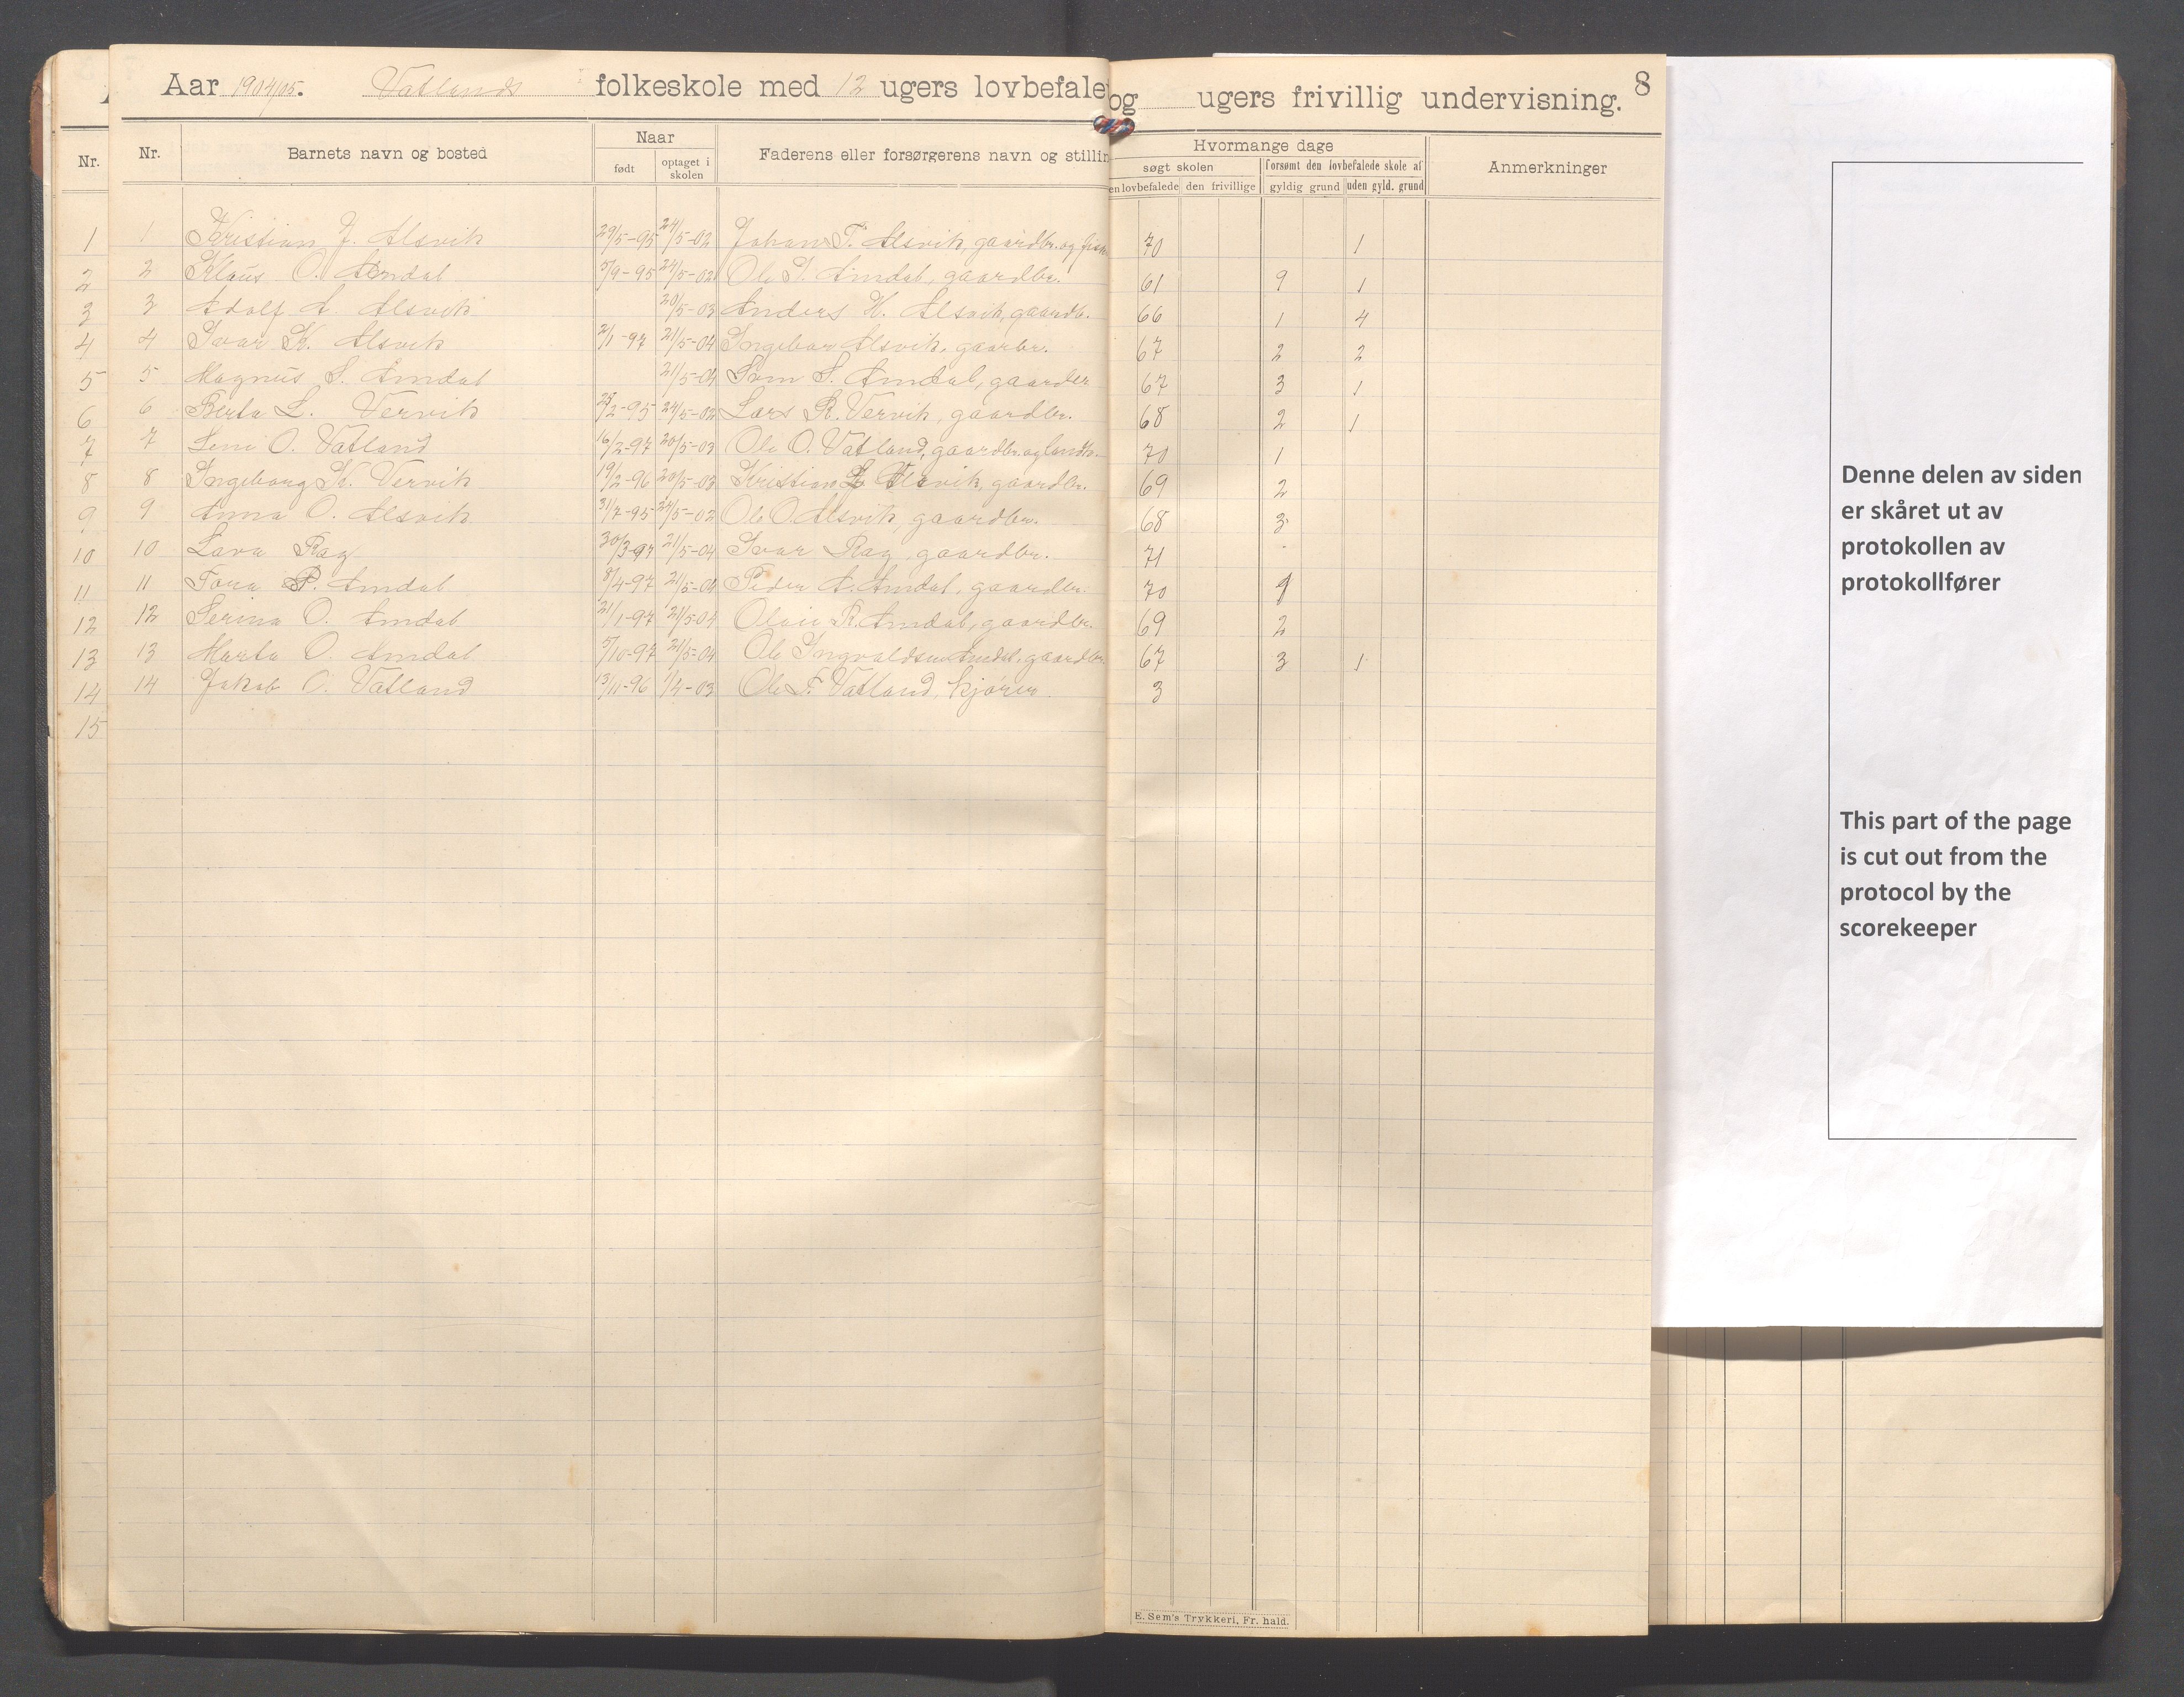 Aar 1904/05. Vatlands folkeskole med 12 ugers lovbefale og ugers frivillig undervisning. 8
Nr. Nr. Barnets navn og bosted Naar født optaget i skolen Faderens eller forsørgerens navn og stillin Hvormange dage søgt skolen en lovbefalede den frivillige forsømt den lovbefalede skole af gyldig grund uden gyld. grund Anmerkninger
1 1 Kristian J. Alsvik 29/5-95 24/5-02 Johan T. Alsvik, gaardbr. og fisk 70 1
2 2 Klaus O. Amdal 5/9-95 24/5-02 Ole I. Amdal, gaardbr. 61 9 1
3 3 Adolf A. Alsvik 20/5-03 Anders H. Alsvik, gaardb. 66 1 4
4 4 Ivar K. Alsvik 2/1-97 21/5-04 Ingebar Alsvik, gaarbr. 67 2 2
5 5 Magnus S. Amdal 21/5-04 S. Amdal, gaardbr 67 3 1
6 6 Berta L. Vervik 25/2-95 24/5-02 Lars K. Vervik, gaardbr. 68 2 1
7 7 Lene O. Vatland 16/2-97 20/5-03 Ole O. Vatland, gaardbr. og landh. 70 1
8 8 Ingeborg K. Vervik 19/2-96 20/5-03 Kristian gaardbr. 69 2
9 9 Anna O. Alsvik 31/7-95 24/5-02 Ole O. Alsvik, gaardbr. 68 3
10 10 Lava Rag 30/3-97 21/5-04 Ivar Rag, gaardbr. 71
11 11 Tora P. Amdal 8/4-97 21/5-04 Peder A. Amdal, gaardbr. 70 1
12 12 Serina O. Amdal 21/1-97 21/5-04 Olai R. Amdal, gaardbr. 69 2
13 13 Marta O. Amdal 5/10-97 21/5-04 Ole Ingvaldsen Amdal, gaardbr. 67 3 1
14 14 Jakob O. Vatland 13/11-96 1/4-03 Ole T. Vatland, kjører. 3
15
Denne delen av siden
er skåret ut av
protokollen av
protokollfører
This part of the page
is cut out from the
protocol by the
scorekeeper
E. Sem's Trykkeri, Fr. hald.